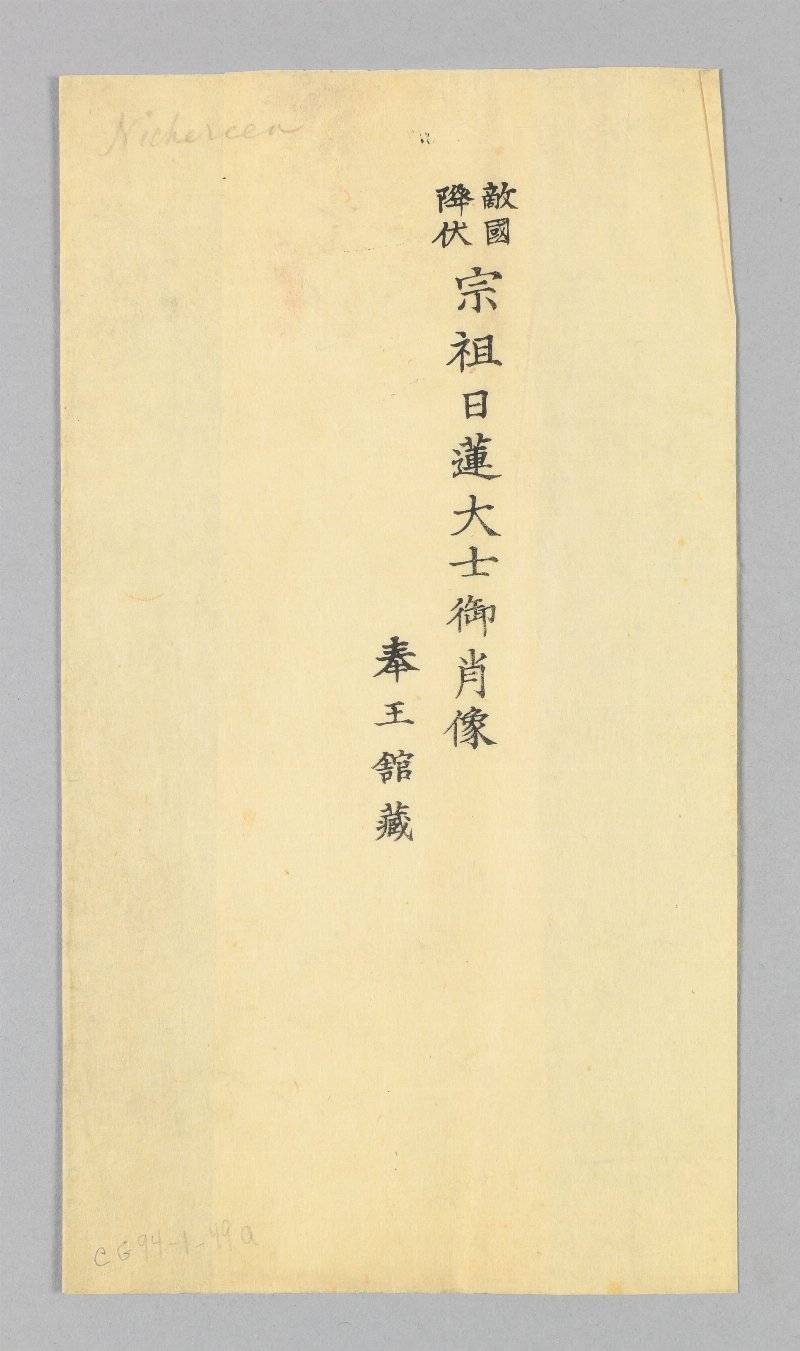 Nichereen
敵國
降伏
宗祖日蓮大士御肖像
奉王舘藏
CG94-1-49a